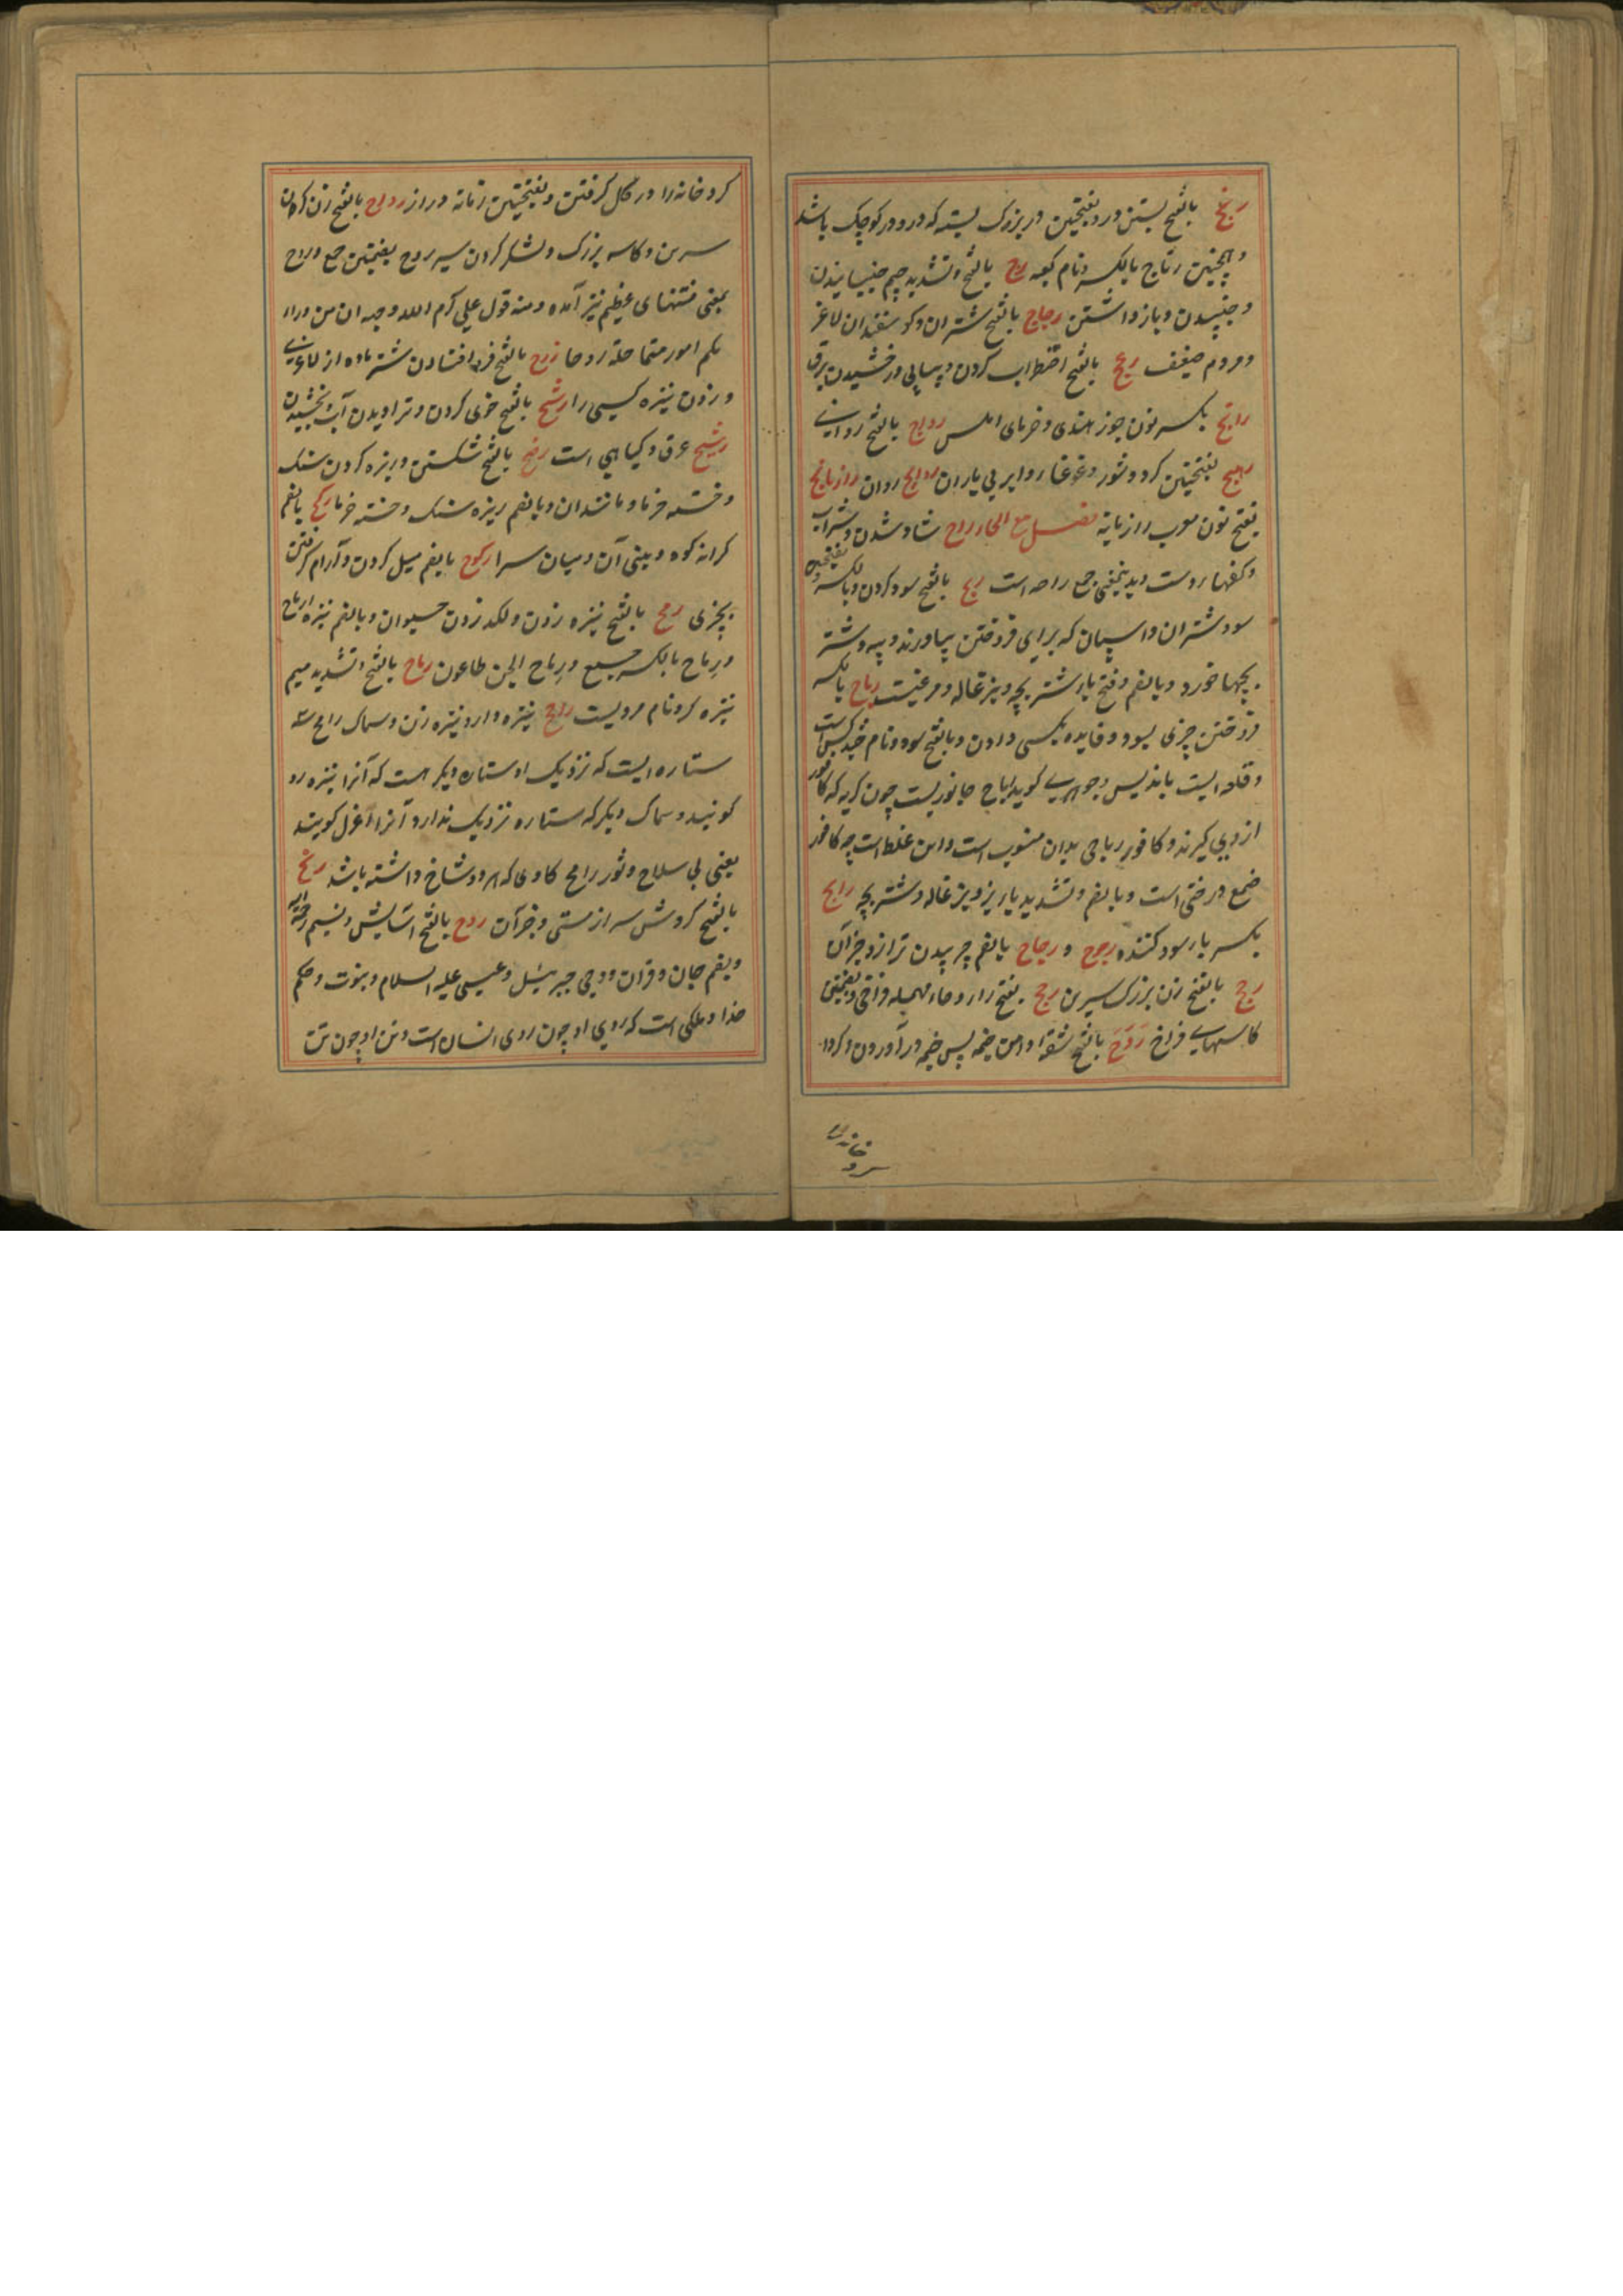 رتج بالفتح بستن در و بفتحتین در بزرک بسته که درو در کوچک باشد
و همچنین رتاج بالکسر و نام کعبه رج بالفتح و تشدید جیم جنبانیدن
و جنبیدن و باز داشتن رجاج بالفتح شتران و کوسفندان لاغر
و مردم ضعیف رعج بالفتح اضطراب کردن و پیاپی درخشیدن برق
رانج بکسر نون جوز هندی و خرمای املس رواج بالفتح روایی
رهج بفتحتین کرد و شور و غوغا و ابر بی باران روایج روان رازیانج
بفتح نون معرب رازیانه فصل مع الحاء راح شاد شدن و شراب
و کفهاء دست و بدین معنی جمع راحه است ربح بالفتح سود کردن و بالکسر و بفتحتین
سود شتران و اسپان که برای فروختن بیاورند و پیه و شتر
بچهاء خورد و بالضم و فتح با شتر بچه و بزغاله و مرغیست رباح بالکسر
فروختن چیزی بسود و فایده بکسی دادن و بالفتح سود و نام چند کس است
و قلعه ایست باندلس و جوهری کوید رباح جانوریست چون کربه که کافور
از وی کیرند و کافور رباحی بدان منسوب است و این غلط است چه کافور
صمغ درختی است و بالضم و تشدید با بز و بزغاله و شتر بچه رابح
بکسر با سود کننده رجوح و رجاح بالضم چربیدن ترازو و جز آن
رجح بالفتح زن بزرک سرین رحح بفتح را و حاء مهمله فراخی و بضمتین
کاسهاے فراخ ردح بالفتح شقه و دامن خیمه پس خیمه در آوردن و کردا
کرد خانه را در کل کرفتن و بفتحتین زمانه دراز رداح بالفتح زن کران
سرین و کاسه بزرک و لشکر کران سیر ردح بضمتین جمع و ردح
بمعنی فتنهای عظیم نیز آمده و منه قول علی کرم الله وجهه ان من وراء
کم امورا متماحلة ردحا رزح بالفتح فرو افتادن شتر ماده از لاغری
و زدن نیزه کسی را رشح بالفتح خوی کردن و تراویدن آب و بخشیدن
رشیح عرق و کیاهی است رضح بالفتح شکستن و ریزه کردن سنک
و خسته خرما و مانند ان و بالضم ریزه سنک و خسته خرما رکح بالضم
کرانه کوه و بینی آن و میان سرا رکوح بالضم میل کردن و آرام کرفتن
بچیزی رمح بالفتح نیزه زدن و لکد زدن حیوان و بالضم نیزه ارماح
و رماح بالکسر جمع و رماح الجن طاعون رماح بالفتح و تشدید میم
نیزه کر و نام مردیست رامح نیزه دار و نیزه زن و سماک رامح
ستاره ایست که نزدیک او ستاره دیکر است که آنرا نیزه رو
کویند و سماک دیکر که ستاره نزدیک ندارد آنرا اعزل کویند
یعنی بی سلاح و ثور رامح کاوی که هر دو شاخ داشته باشد رنح
بالفتح کردش سر از مستی و جز آن روح بالفتح آسایش و نسیم و
و بضم جان و قران و وحی و جبرئیل و عیسی علیه السلام و نبوت و حکم
خدا و ملکی است که روی او چون روی انسان است و تن او چون تن